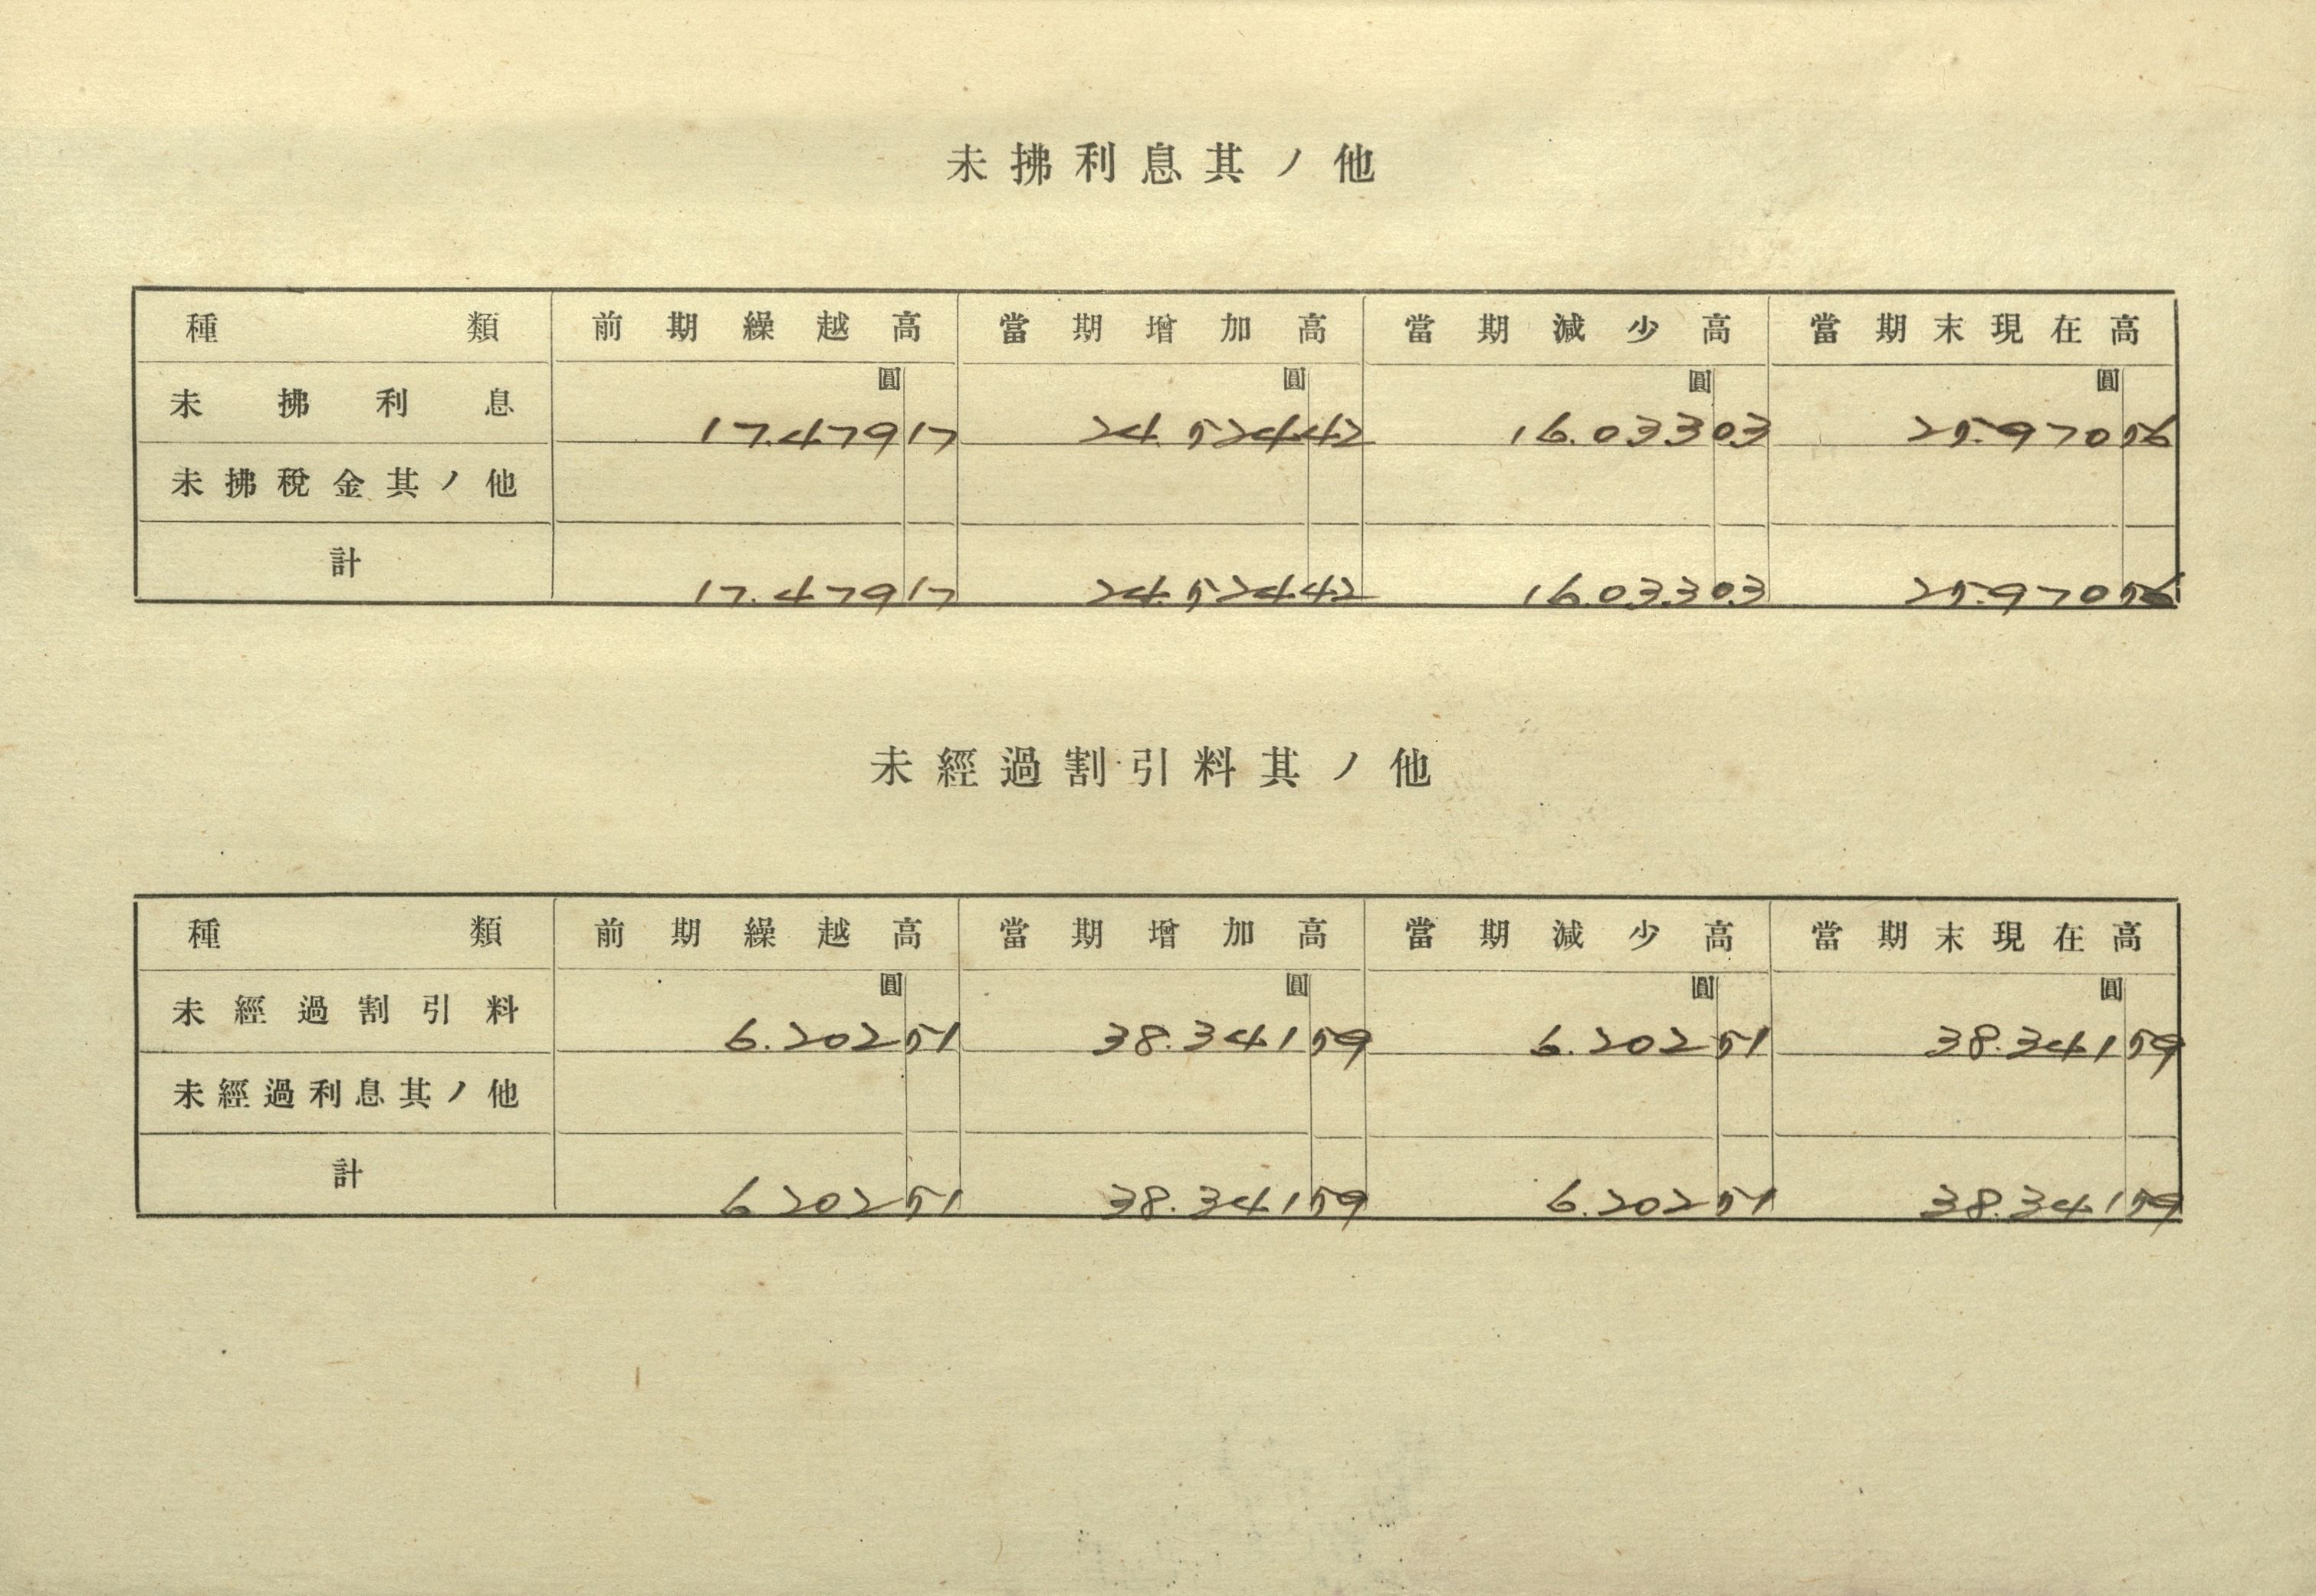 未拂利息其ノ他
種類 前期繰越高 當期增加高 當期減少高 當期末現在高
圓 圓 圓 圓
未拂利息 17.479 17 24.524 42 16.033 03 25.970 56
未拂稅金其ノ他
計 17.479 17 24.524 42 16.033 03 25.970 56
未經過割引料其ノ他
種類 前期繰越高 當期增加高 當期減少高 當期末現在高
圓 圓 圓 圓
未經過割引料 6.202 51 38.341 59 6.202 51 38.341 59
未經過利息其ノ他
計 6 202 51 38.341 59 6.202 51 38.341 59